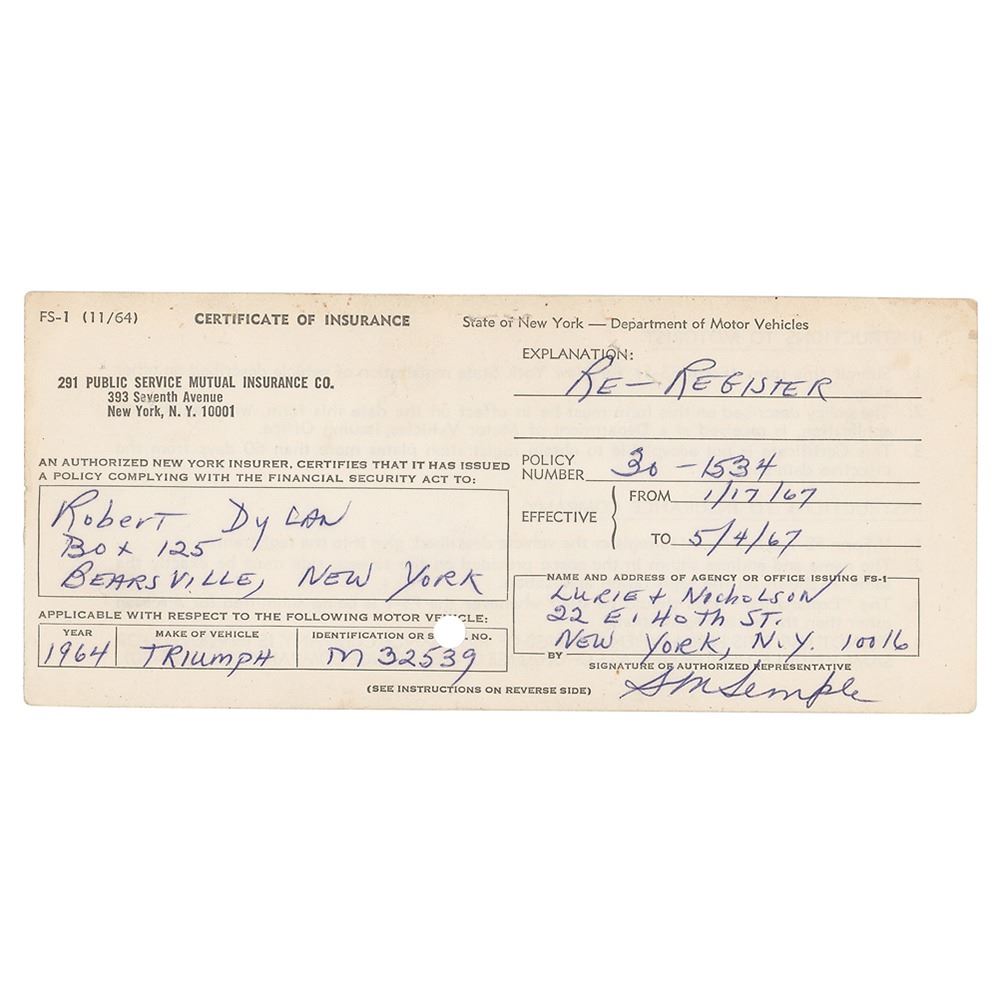 FS-1 (11/64) CERTIFICATE OF INSURANCE State of New York — Department of Motor Vehicles
291 PUBLIC SERVICE MUTUAL INSURANCE CO.
393 Seventh Avenue
New York, N. Y. 10001
EXPLANATION:
RE-REGISTER
AN AUTHORIZED NEW YORK INSURER, CERTIFIES THAT IT HAS ISSUED
A POLICY COMPLYING WITH THE FINANCIAL SECURITY ACT TO:
Robert Dylan
Box 125
BEARSVILLE, NEW YORK
POLICY
NUMBER 30-1534
EFFECTIVE
FROM 1/17/67
TO 5/4/67
APPLICABLE WITH RESPECT TO THE FOLLOWING MOTOR VEHICLE:
YEAR MAKE OF VEHICLE IDENTIFICATION OR S NO.
1964 TRIUMPH M 32539
NAME AND ADDRESS OF AGENCY OR OFFICE ISSUING FS-1
LURIE + NICHOLSON
22 E. 40TH ST.
NEW YORK, N.Y. 10016
BY
SIGNATURE OF AUTHORIZED REPRESENTATIVE
SM Semple
(SEE INSTRUCTIONS ON REVERSE SIDE)